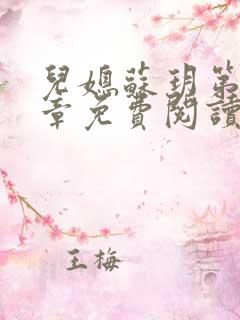 兒媳蘇玥第
章免費閱讀
王梅